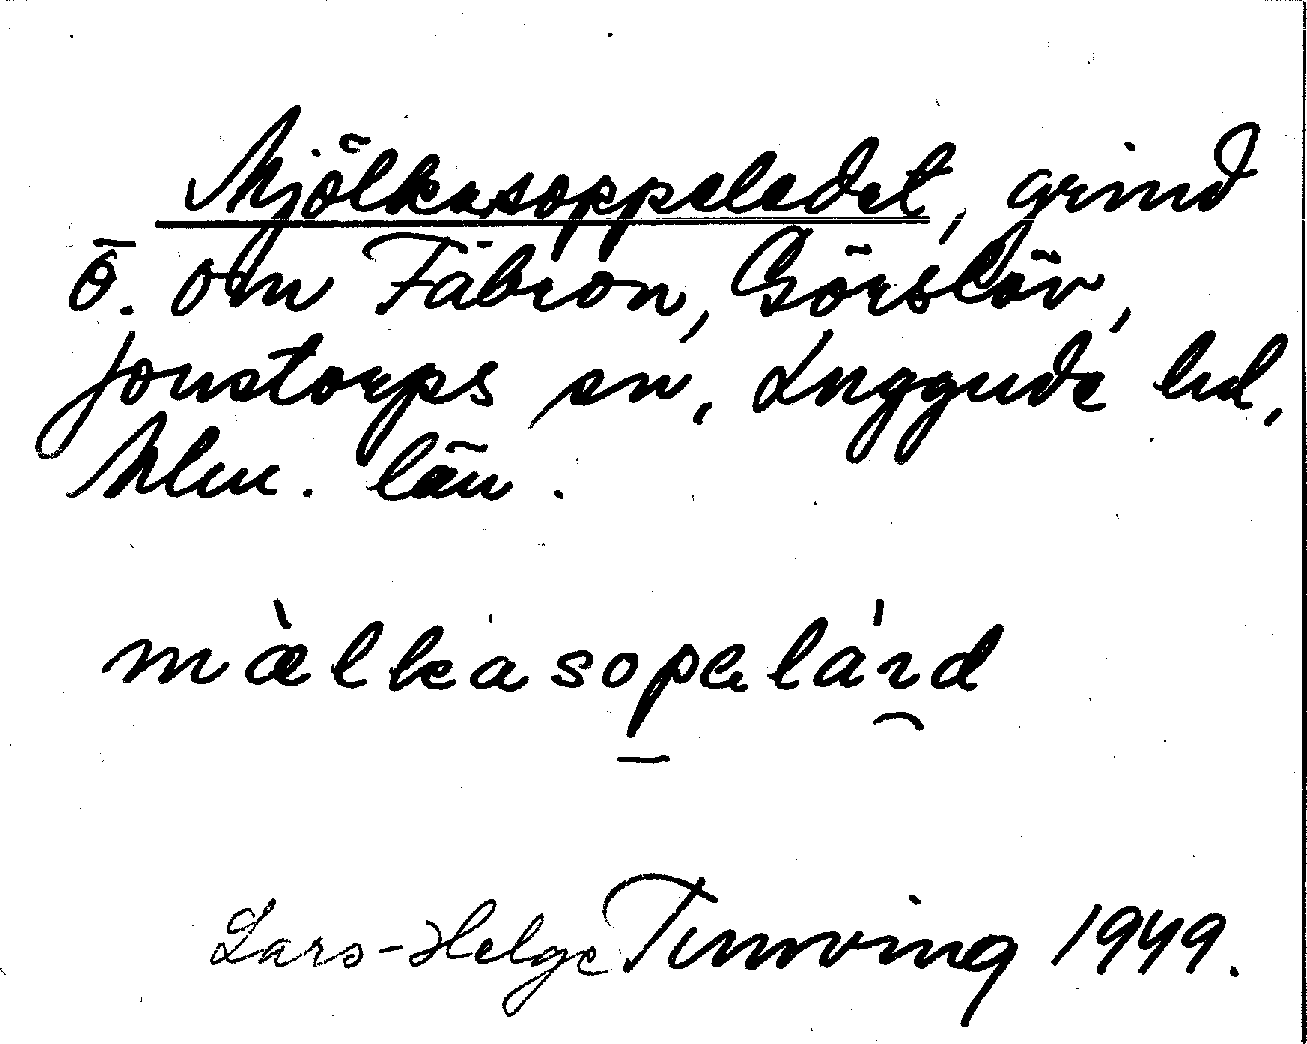 Mjölkasoppeledet, grind
ö. om Fäbron, Görslöv,
Jonstorps sn, Luggude hd,
Mlm. län.
mælkasopelárd
Lars-Helge Tunving 1949.